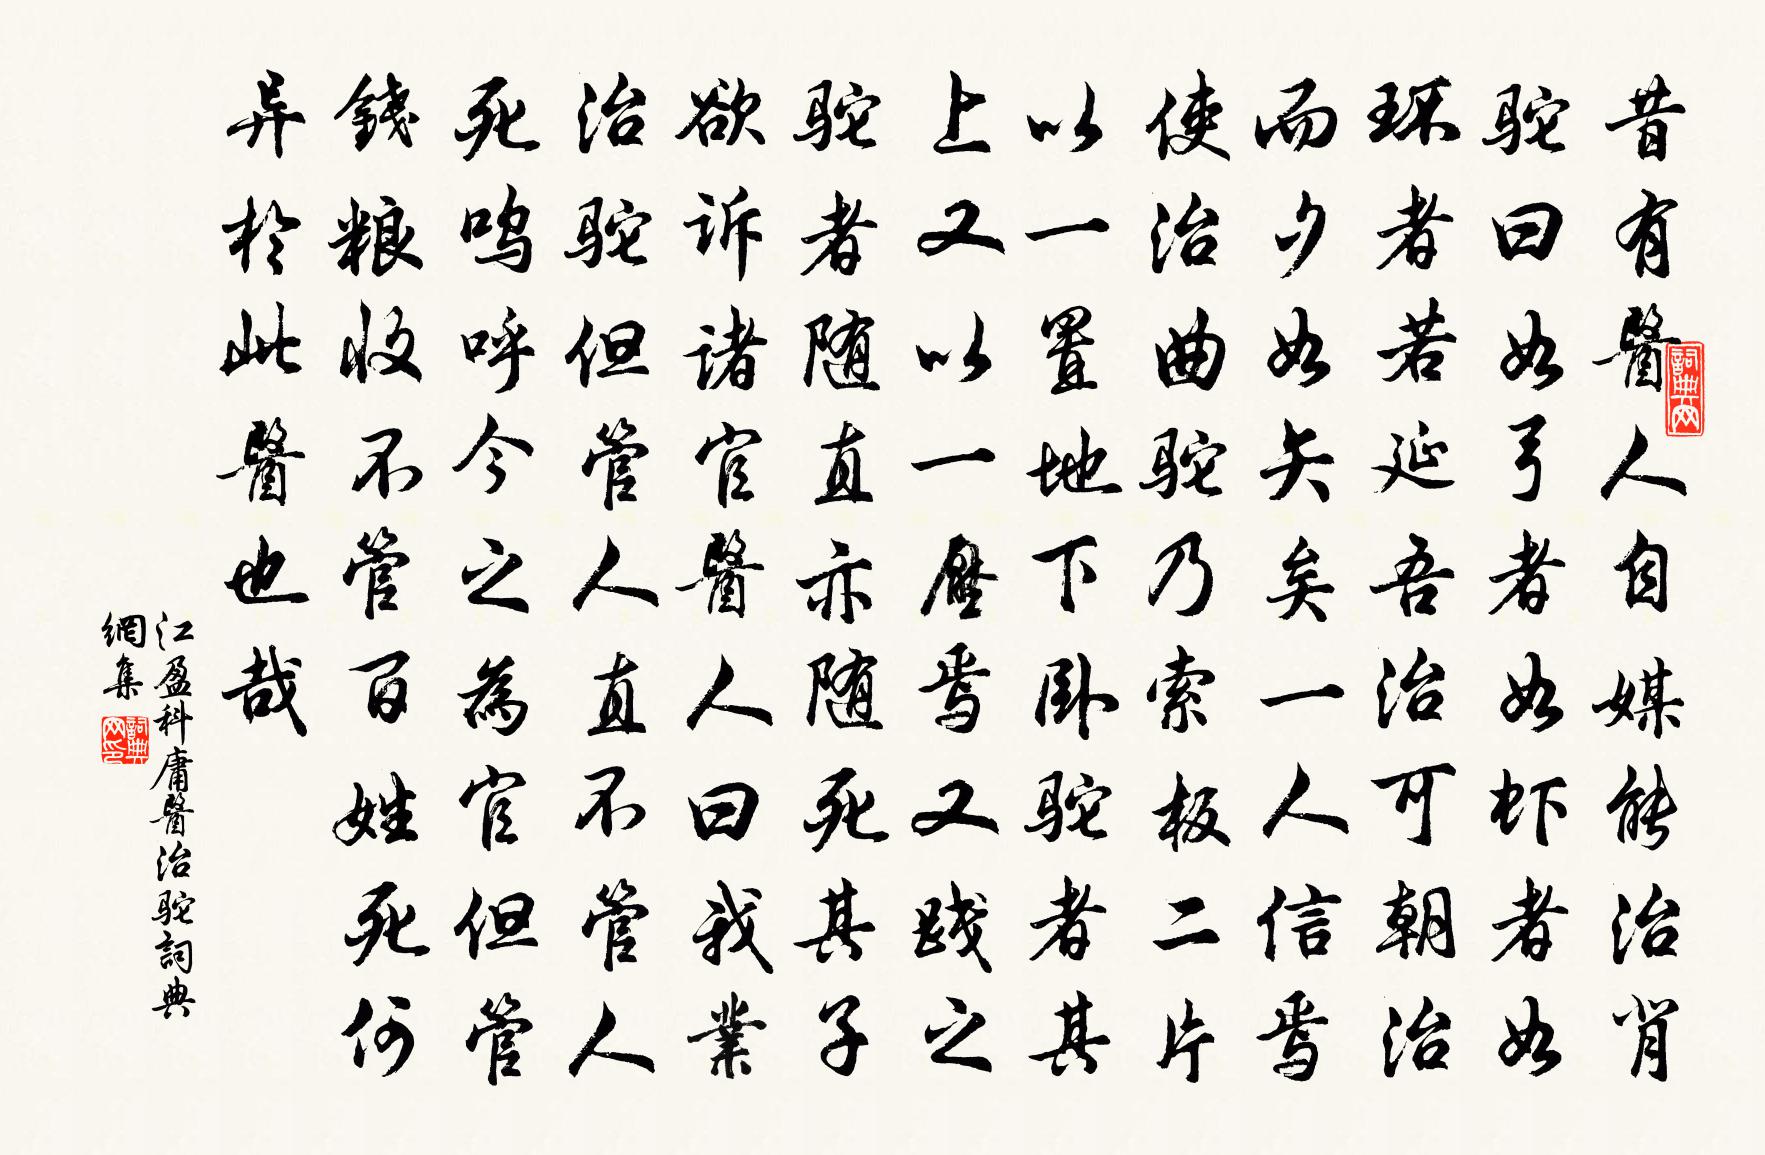 昔有醫人自媒能治背
驼曰如弓者如虾者如
环者若延吾治可朝治
而夕如矢矣一人信焉
使治曲驼乃索板二片
以一置地下卧驼者其
上又以一壓焉又践之
驼者随直亦随死其子
欲诉诸官醫人曰我業
治驼但管人直不管人
死呜呼今之為官但管
錢粮收不管百姓死何
异於此醫也哉
江盈科庸醫治驼詞典
網集
詞典网
詞典网印